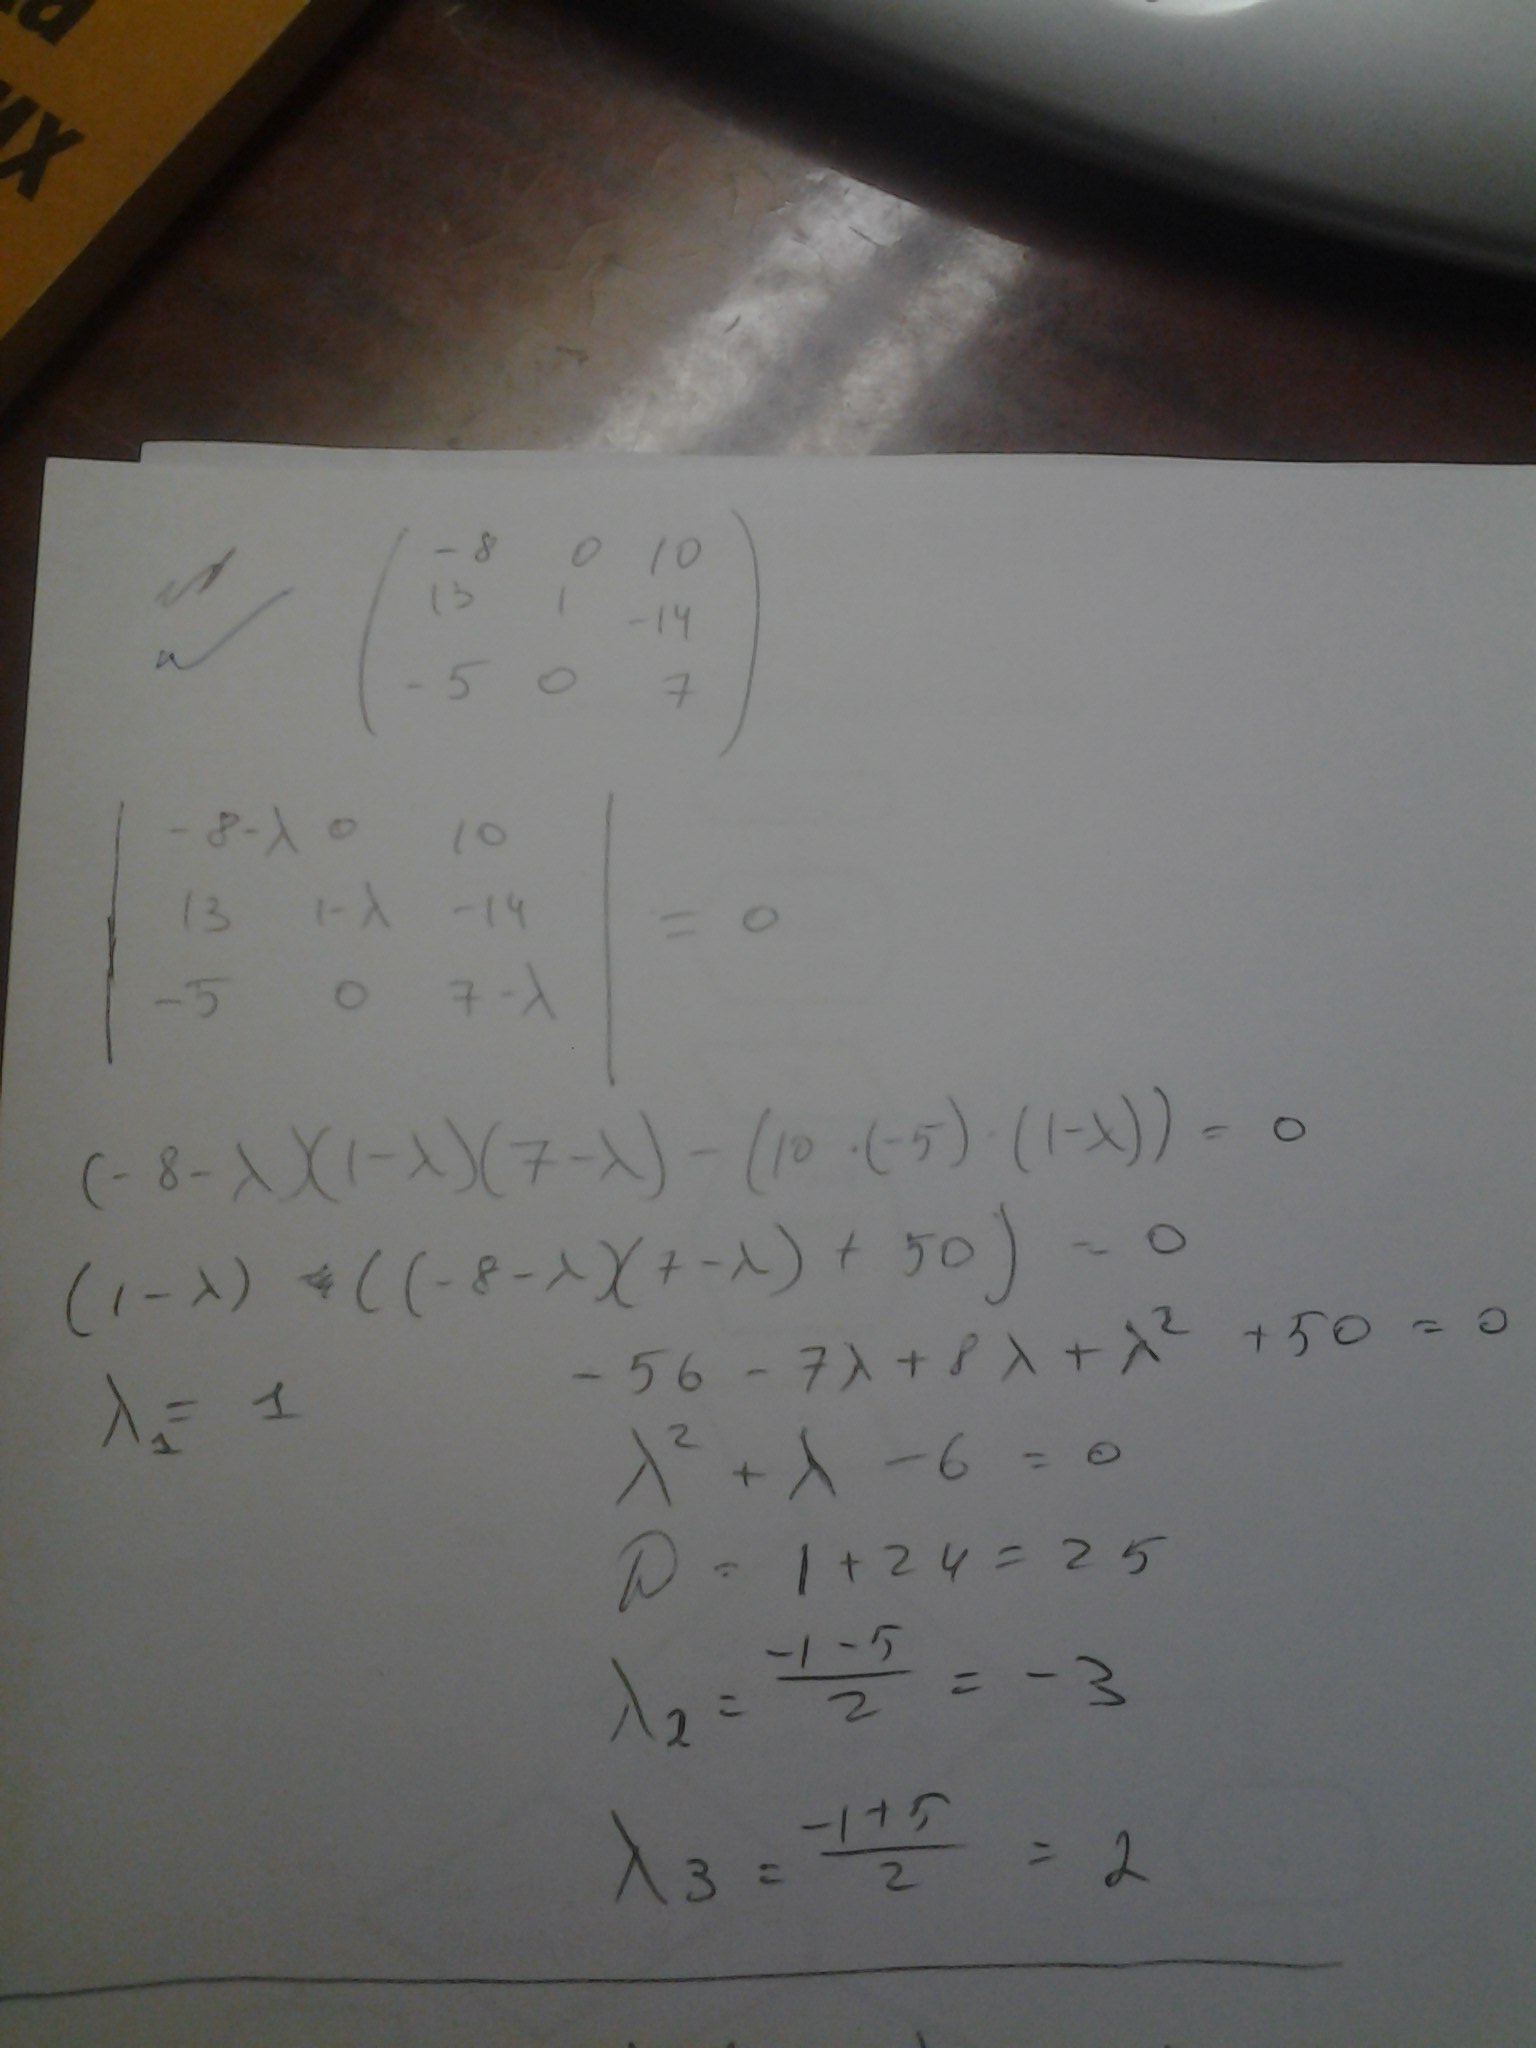 -8 0 10
13 1 -14
-5 0 7
| -8-λ 0 10 |
| 13 1-λ -14 | = 0
| -5 0 7-λ |
(-8-λ)(1-λ)(7-λ) - (10·(-5)·(1-λ)) = 0
(1-λ) * ((-8-λ)(7-λ) + 50) = 0
λ₁ = 1
-56 - 7λ + 8λ + λ² + 50 = 0
λ² + λ - 6 = 0
D = 1 + 24 = 25
λ₂ = (-1-5)/2 = -3
λ₃ = (-1+5)/2 = 2